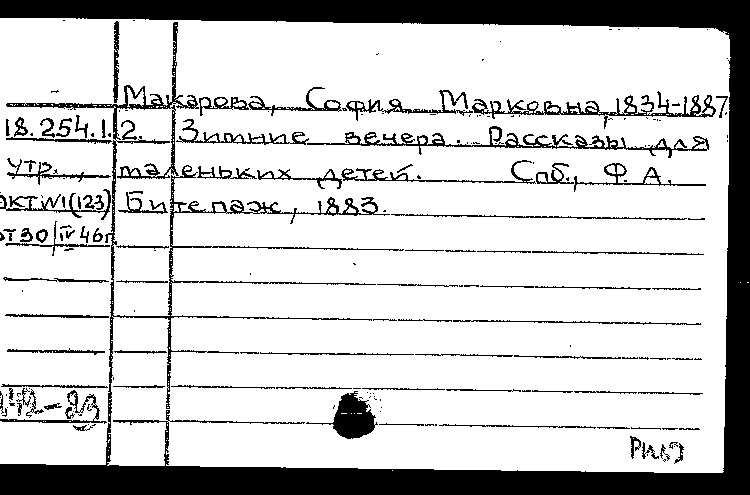 Макарова, София Марковна, 1834-1887
18.254.1.2. Зимние вечера. Рассказы для
утр., маленьких детей. Спб., Ф. А.
акт №1(123) Битепаж, 1883.
от 30/IV 46г.